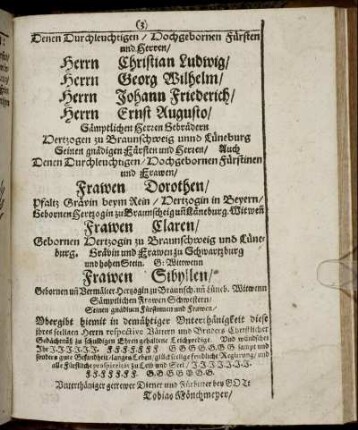 (3)
Denen Durchleuchtigen / Hochgebornen Fürsten
und Herren/
Herrn Christian Ludwig/
Herrn Georg Wilhelm/
Herrn Johann Friederich/
Herrn Ernst Augusto/
Sämptlichen Herren Gebrüdern
Hertzogen zu Braunschweig unnd Lüneburg
Seinen gnädigen Fürsten und Herren/ Auch
Denen Durchleuchtigen/ Hochgebornen Fürstinen
und Frawen/
Frawen Dorothen/
Pfaltz Grävin beym Rein / Hertzogin in Beyern/
Gebornen Hertzogin zu Braunschweig uñ Lüneburg. Witweñ
Frawen Claren/
Gebornen Hertzogin zu Braunschweig und Lüne-
burg, Grävin und Frawen zu Schwartzburg
und hohen Stein. G: Witwenn
Frawen Sibyllen/
Gebornen uñ Vermälter Hertzogin zu Braunsch. uñ Lüneb. Witwenn
Sämptlichen Frowen Schwestern/
Seinen gnädigen Fürstinnen und Frawen/
Ubergibt hiemit in demühtiger Unterthänigkeit diese
ihres seeligen Herrn respectivè Vättern und Bruders Christlicher
Gedächtnüß zu schuldigen Ehren gehaltene Leichpredigt. Und wündschet
Ihr I I I I I I I. F F F F F F F G G G G G G G sampt und
sonders gute Gesundheit/ langes Leben/ glückseelige fridliche Regierung/ und
alle Fürstliche prosperitet zu Leib und Seel/ I I I I I I I.
F F F F F F F. G G G G G G G.
Unterthäniger getrewer Diener und Fürbitter bey GOTT
Tobias Mönchmeyer/